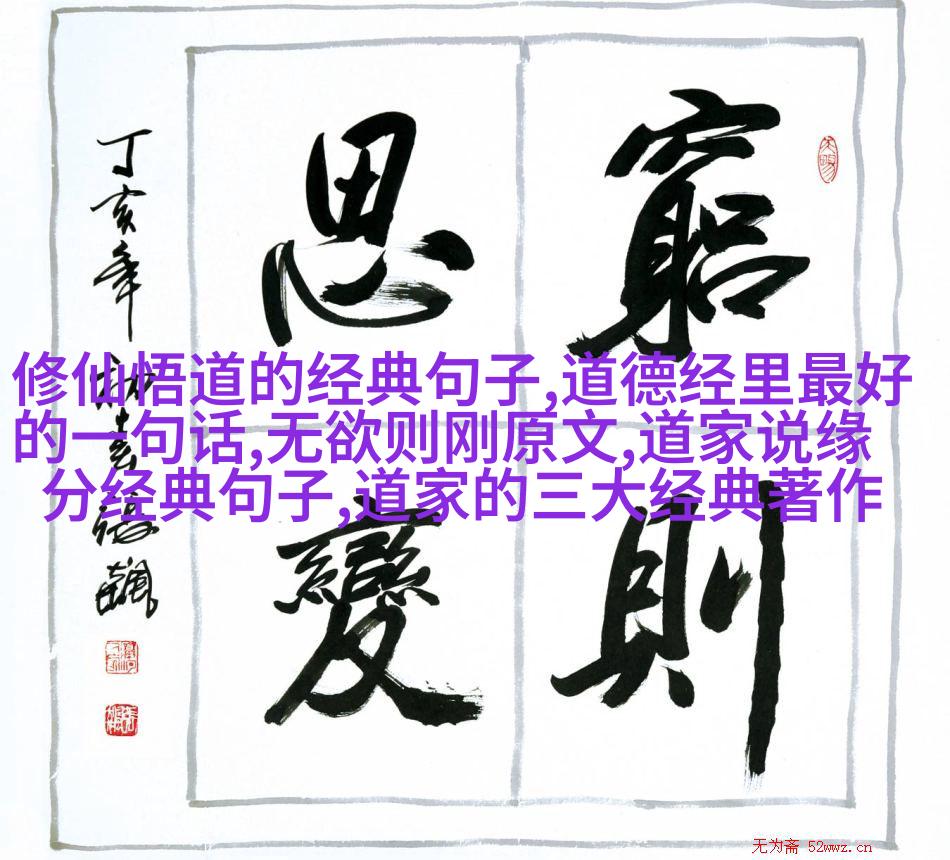 窮則
思變
丁亥年
修仙悟道的经典句子,道德经里最好
的一句话,无欲则刚原文,道家说缘
分经典句子,道家的三大经典著作
无为斋 52wwz.cn